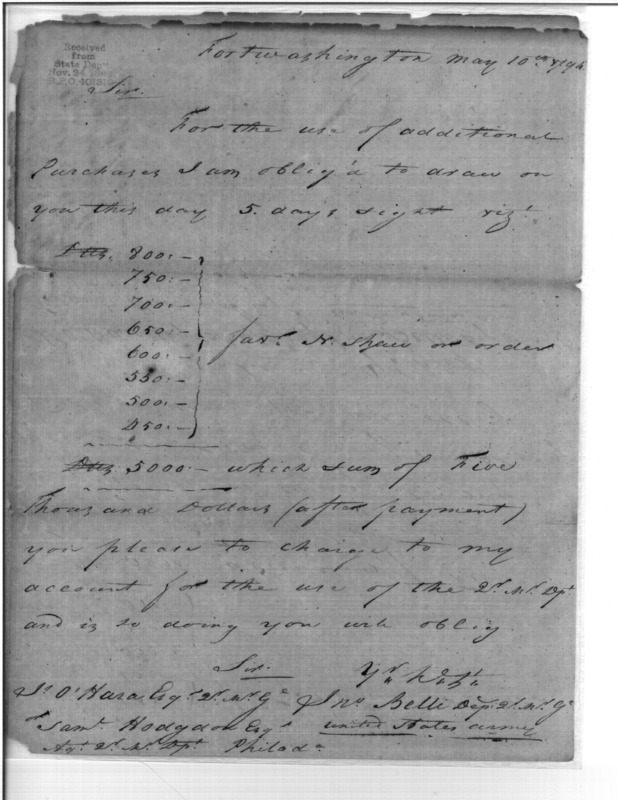 Received
from
State Dept
Nov. 24
R.P.O. 
Fortwashington May 10th 1794
Sir.
For the use of additional
Purchases I am oblig'd to draw on
you this day 5. days sight viz.t
Dlls. 800.-
750.-
700.-
650.-
600.- favr. N. Shaw or order
550.-
500.-
450.-
Dlls 5000.- which sum of Five
Thousand Dollars (after payment)
you please to charge to my
account for the use of the Qr. Mr. Dpt
and in so doing you will oblig
Sir. Yr H St
Js O'Hara Esqr. Qr. Mr. Gl Jno Belli Dep. Qr. Mr. Gl
or Saml Hodgdon Esqr United States army
Agt Qr. Mr. Dpt Philada